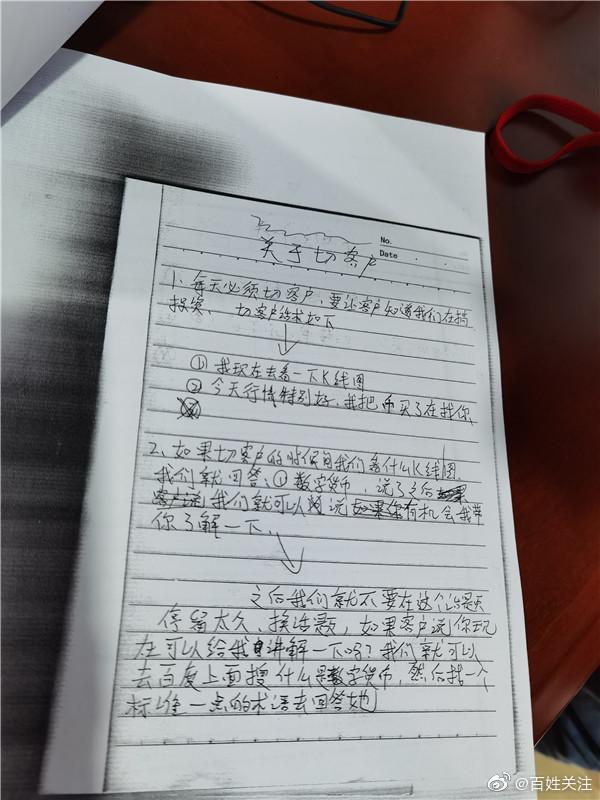 No.
Date
关于切客户
1、每天必须切客户,要让客户知道我们在搞
投资、切客户话术如下
① 我现在去看一下K线图
② 今天行情特别好,我把币买了在找你
2、如果切客户的时候问我们看什么K线图
我们就回答、①数字货币,说了之后
我们就可以说有机会我带
你了解一下、
之后我们就不要在这个话题
停留太久、换话题,如果客户说你现
在可以给我讲解一下吗?我们就可以
去百度上面搜什么是数字货币,然后找一个
标准一点的术语去回答她
@百姓关注